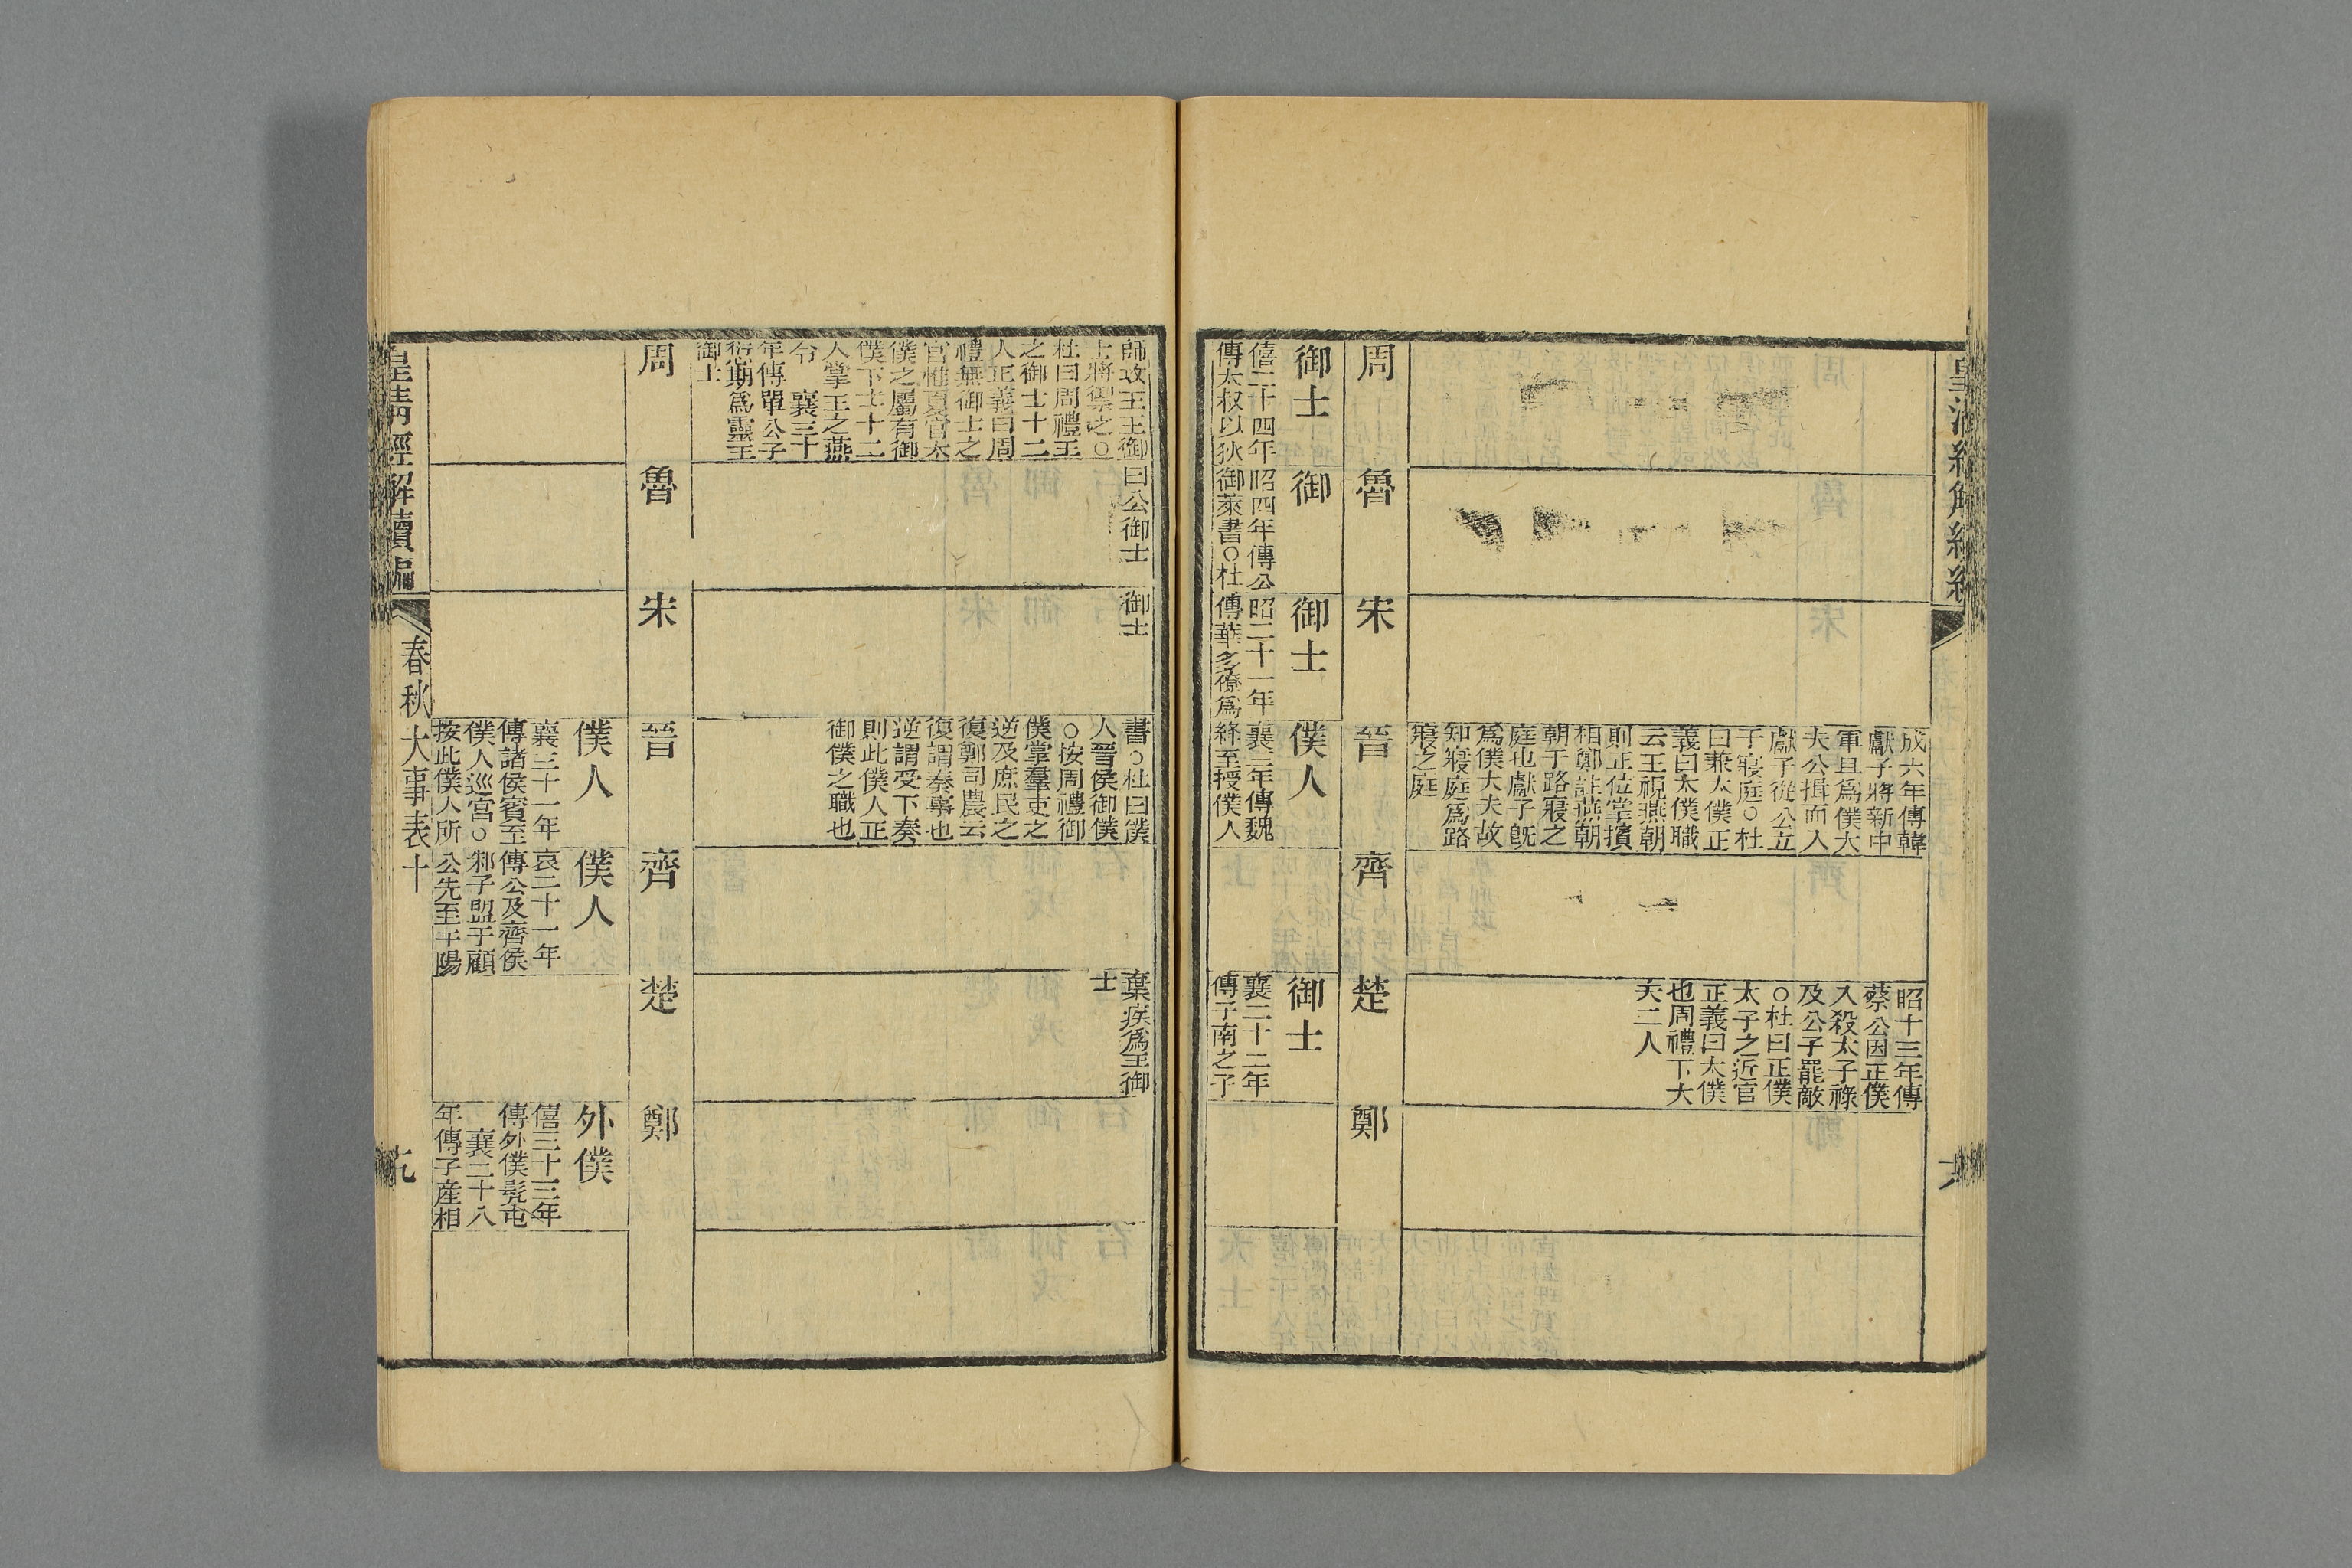 皇清經解續編
成六年傳韓
獻子將新中
軍且爲僕大
夫公揖而入
獻子從公立
于寢庭○杜
曰兼太僕正
義曰太僕職
云王視燕朝
則正位掌擯
相鄭註燕朝
朝于路寢之
庭也獻子旣
爲僕大夫故
知寢庭爲路
寢之庭
昭十三年傳
蔡公因正僕
人殺太子祿
及公子罷敵
○杜曰正僕
太子之近官
正義曰大僕
也周禮下大
夫二人
周
魯
宋
晉
齊
楚
鄭
御士
僖二十四年
傳大叔以狄
御
昭四年傳公
御萊書○杜
御士
昭二十一年
傳華多僚爲
僕人
襄三年傳魏
絳至授僕人
御士
襄二十二年
傳子南之子
師攻王王御
士將禦之○
杜曰周禮王
之御士十二
人正義曰周
禮無御士之
官惟夏官太
僕之屬有御
僕下士十二
人掌王之燕
令 襄三十
年傳單公子
愆期爲靈王
御士
曰公御士
御士
書○杜曰僕
人晉侯御僕
○按周禮御
僕掌羣吏之
逆及庶民之
復鄭司農云
復謂奏事也
逆謂受下奏
則此僕人正
御僕之職也
棄疾爲王御
士
周
魯
宋
晉
齊
楚
鄭
僕人
襄三十一年
傳諸侯賓至
僕人巡宮○
按此僕人所
僕人
哀二十一年
傳公及齊侯
邾子盟于顧
公先至于陽
外僕
僖三十三年
傳外僕髡屯
襄二十八
年傳子産相
皇清經解續編
春秋大事表十
九